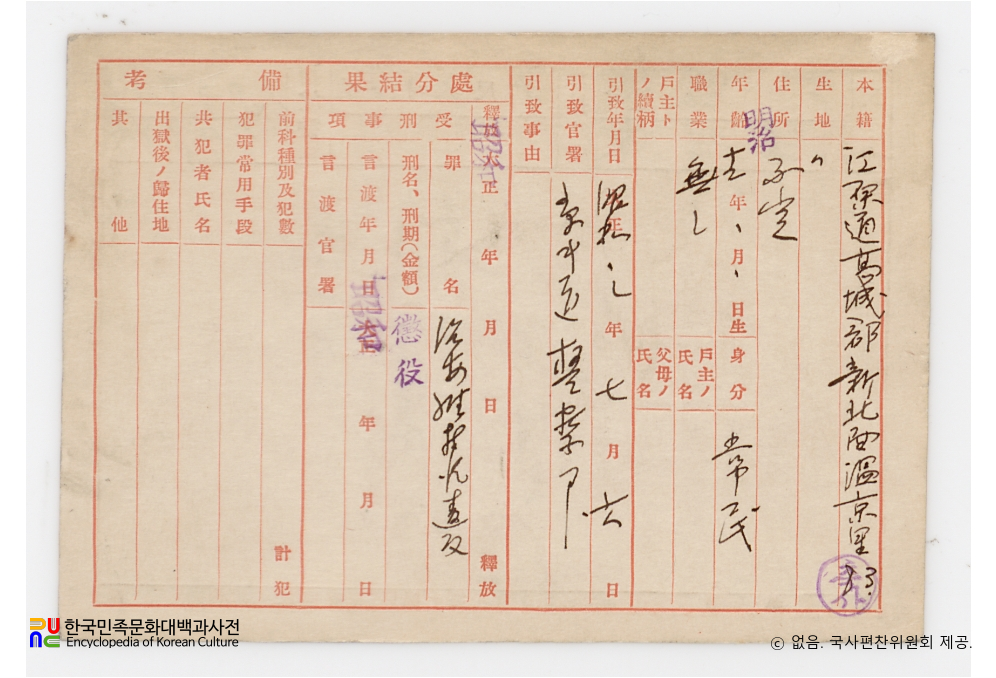 本籍 江原道高城郡新北面温京里
生地 〃
住所 不定
年齡 明治 年、月、日生
身分 常民
職業 無し
戸主ノ氏名
戸主トノ續柄
父母ノ氏名
引致年月日 昭和 年七月六日
引致官署 京畿道警察部
引致事由
處分結果
釋放 昭和 大正 年 月 日 釋放
受刑事項
罪名 治安維持法違反
刑名、刑期(金額) 懲役
言渡年月日 昭和 大正 年 月 日
言渡官署
備考
前科種別及犯數 計 犯
犯罪常用手段
共犯者氏名
出獄後ノ歸住地
其他
한국민족문화대백과사전
Encyclopedia of Korean Culture
© 없음. 국사편찬위원회 제공.